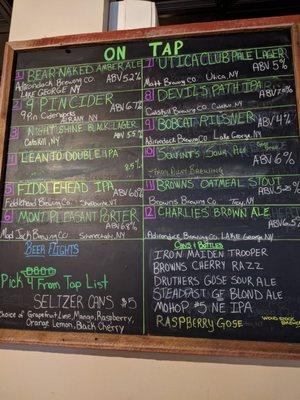 ON TAP
1 BEAR NAKED AMBER ALE
Adirondack Brewing Co. ABV 5.2%
LAKE GEORGE NY
2 9 PIN CIDER
9 Pin Ciderworks ABV 6.7%
ALBANY NY
3 NIGHT SHINE BLACK LAGER
Catskill, NY ABV 5.5%
4 LEAN TO DOUBLE IPA
5 FIDDLEHEAD IPA
Fiddlehead Brewing Co. Shelburne VT
6 MONT PLEASANT PORTER
Mad Jack Brewing Co. Schenectady, NY
BEER FLIGHTS
Pick 4 From Tap List
SELTZER CANS $5
Choice of Grapefruit, Lime, Mango, Raspberry,
Orange, Lemon, Black Cherry
UTICA CLUB PALE LAGER
Matt Brewing Co. Utica, NY ABV 5%
8 DEVILS PATH IPA
9 BOBCAT
Adirondack Brewing Co. Lake George, NY ABV 4%
Sour Ale
ABV 6%
BREWING
11 BROWNS OATMEAL STOUT
Browns Brewing Co. Troy, NY
12 CHARLIES BROWN ALE
Adirondack Brewing Co. LAKE GEORGE NY
Cans & Bottles
IRON MAIDEN TROOPER
BROWNS CHERRY RAZZ
DRUTHERS GOSE SOUR ALE
STEADFAST GF BLOND ALE
MOHOP #5 NE IPA
RASPBERRY GOSE